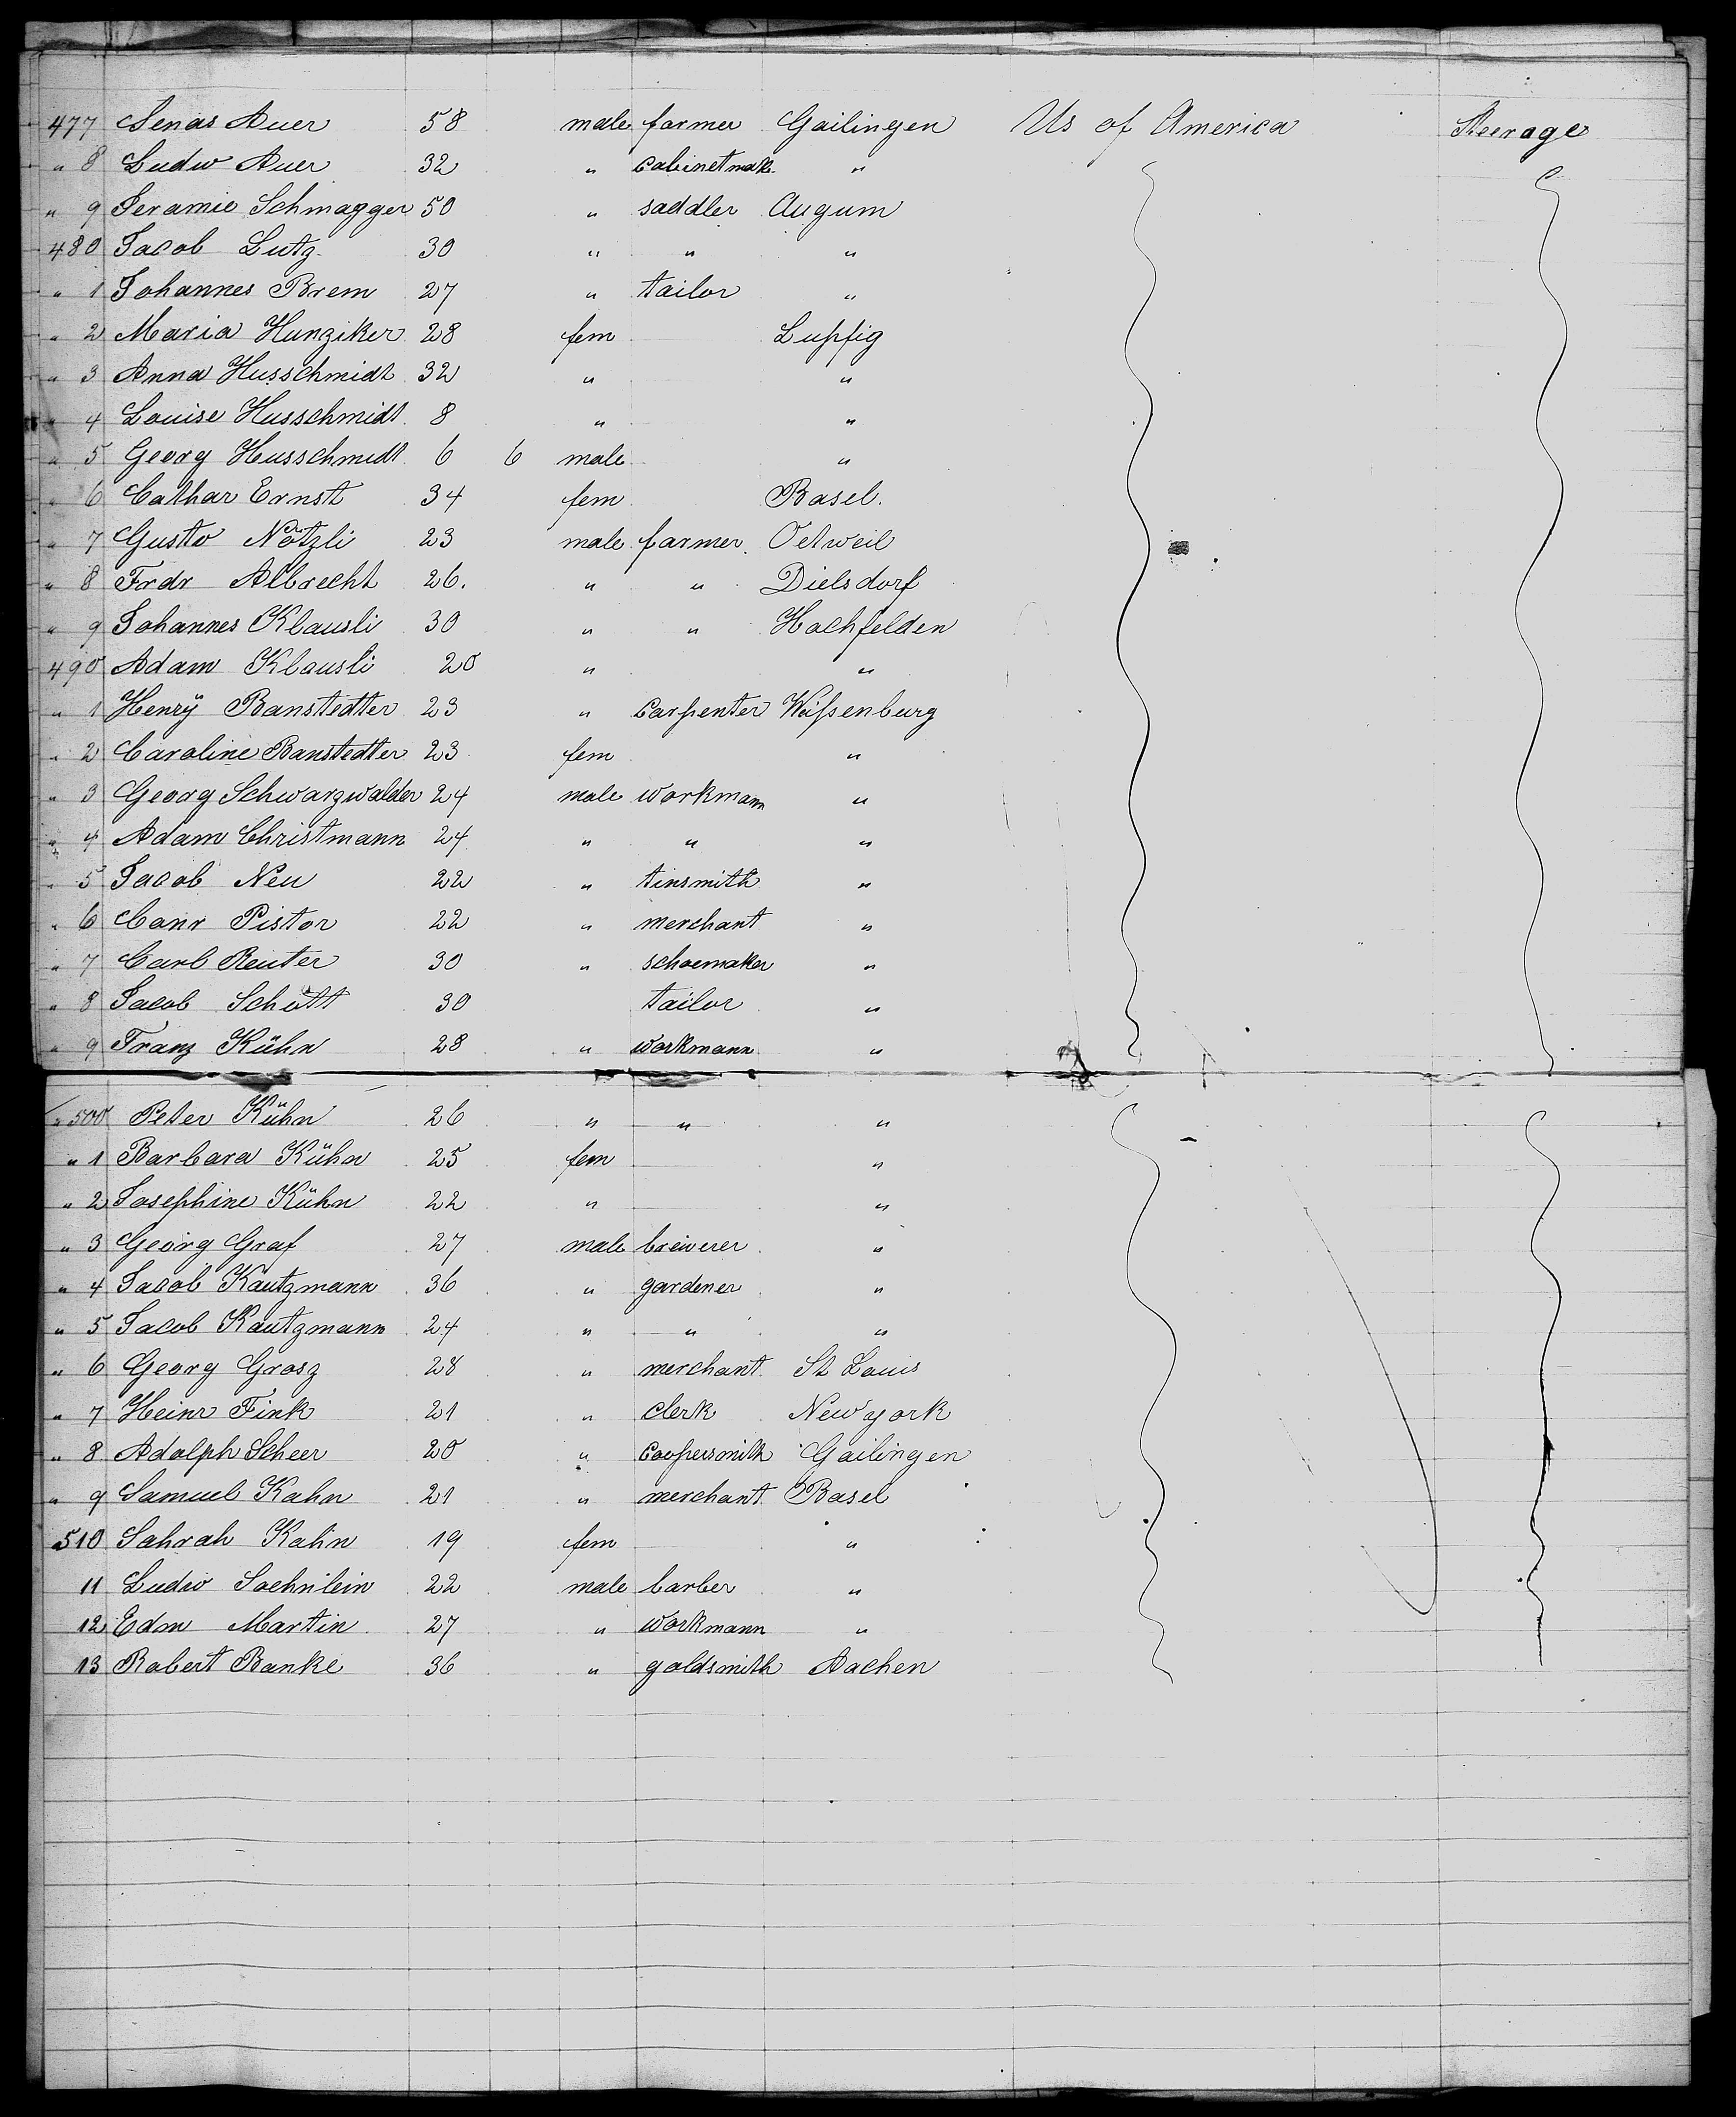 477 Senas Auer 58 male farmer Gailingen Us of America Steerage
" 8 Ludw Auer 32 " cabinetmak. "
" 9 Jeramie Schmagger 50 " saddler Augum
480 Jacob Lutz 30 " " "
" 1 Johannes Brem 27 " tailor "
" 2 Maria Hunziker 28 fem Lupfig
" 3 Anna Husschmidt 32 " "
" 4 Louise Husschmidt 8 " "
" 5 Georg Husschmidt 6 6 male "
" 6 Cathar Ernst 34 fem Basel.
" 7 Gustv Nötzli 23 male farmer. Oetweil
" 8 Frdr Albrecht 26. " " Dielsdorf
" 9 Johannes Klausli 30 " " Hochfelden
490 Adam Klausli 20 " "
" 1 Henrÿ Banstedter 23 " carpenter Weißenburg
" 2 Caroline Banstedter 23 fem "
" 3 Georg Schwarzwalder 24 male workmann "
" 4 Adam Christmann 24 " " "
" 5 Jacob Neu 22 " tinsmith "
" 6 Conr Pistor 22 " merchant "
" 7 Carl Reuter 30 " schoemaker "
" 8 Jacob Schott 30 tailor "
" 9 Franz Kühn 28 " workmann "
" 500 Peter Kühn 26 " " "
" 1 Barbara Kühn 25 fem "
" 2 Josephine Kühn 22 " "
" 3 Georg Graf 27 male brewerer "
" 4 Jacob Kautzmann 36 " gardener "
" 5 Jacob Kautzmann 24 " " "
" 6 Georg Grosz 28 " merchant St Louis
" 7 Heinr Fink 21 " clerk New york
" 8 Adolph Scheer 20 " coopersmith Gailingen
" 9 Samuel Kahn 21 " merchant Basel
510 Sahrah Kahn 19 fem "
11 Ludw Soehnlein 22 male barber "
12 Edm Martin 27 " workmann "
13 Robert Banke 36 " goldsmith Aachen